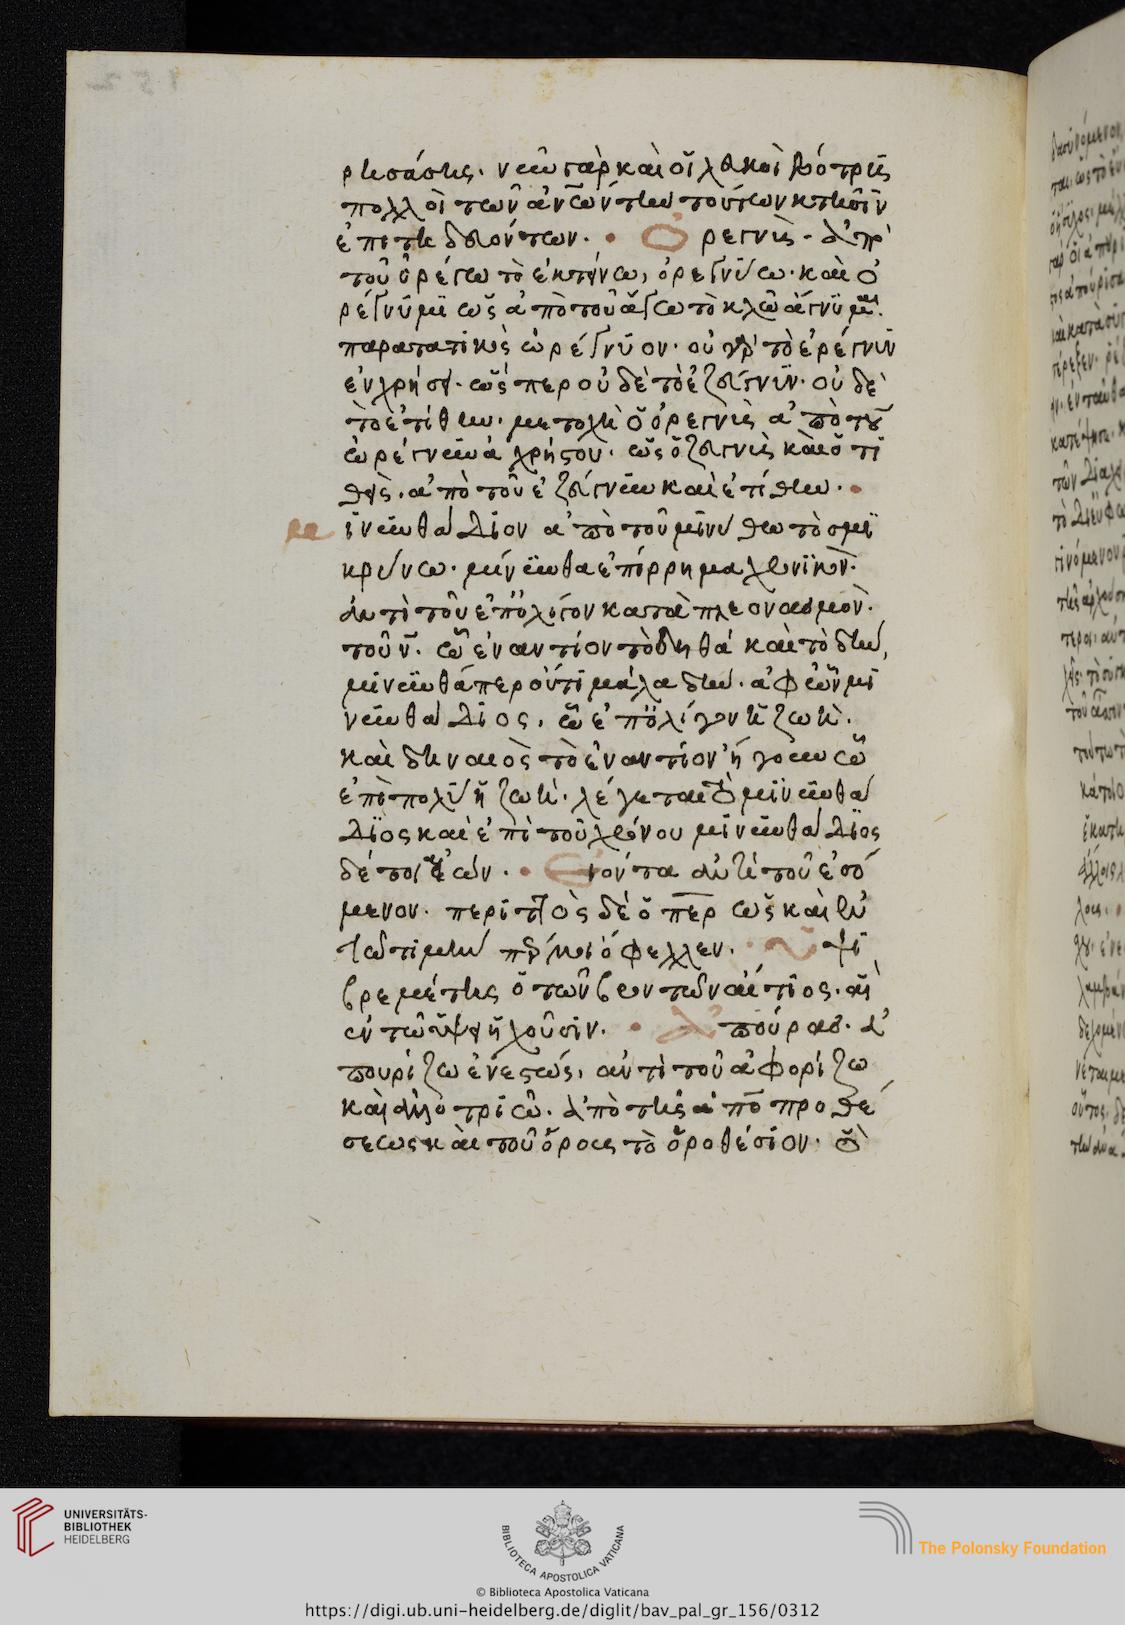 ρήσαστης. νῦν γὰρ καὶ οἱ
πολλοὶ τῶν τούτων κτῆσιν
ἐπιτηδευόντων. Ὀρεγνὺς. ἀπὸ
τοῦ ὀρέγω τὸ ἐκτείνω, ὀρεγνύω. καὶ ὀ
ρέγνυμι ὡς ἀπὸ τοῦ ἄγω τὸ κλῶ ἄγνυμι.
παρατατικὸς ὠρέγνυον. οὐ γὰρ τὸ ἐρέγνυν
ἐν χρήσει. ὥσπερ οὐδὲ τὸ ἐζεύγνυν. οὐδὲ
τὸ ἐτίθην. μετοχὴ ὁ ὀρεγνὺς ἀπὸ τοῦ
ὠρέγνυν ἀχρήστου. ὡς ὁ ζευγνὺς καὶ ὁ τι
θεὶς. ἀπὸ τοῦ ἐζεύγνυν καὶ ἐτίθην.
ινυνθάδιον ἀπὸ τοῦ μινύθω τὸ σμι
κρύνω. μίνυνθα ἐπίρρημα χρονικὸν.
ἀντὶ τοῦ ἐπ' ὀλίγον κατὰ πλεονασμὸν.
τοῦ ν. ᾧ ἐναντίον τὸ δηθά καὶ τὸ δήν,
μίνυνθά περ οὔτι μάλα δήν. ἀφ' ὧν μι
νυνθάδιος, ὁ ἐπ' ὀλίγον ζωῆ.
καὶ δηναιὸς τὸ ἐναντίον ἤγουν ὁ
ἐπιπολὺ ζωῆ. λέγεται τὸ μινυνθά
διος καὶ ἐπὶ τοῦ χρόνου μινυνθάδιος
δέ τοι αἰών. Ἐόντα ἀντὶ τοῦ ἐσό
μενον. περιττὸς δὲ ὁ περ ὡς καὶ ἐν
τῶ τιμήν πέρ μοι ὄφελλεν. Ὑψι
βρεμέτης ὁ τῶν βροντῶν αἴτιος. αἳ
ἐν τῶ ὕψει ἠχοῦσιν. Ἀπούρας. ἀ
πουρίζω ἐνεστώς, ἀντὶ τοῦ ἀφορίζω
καὶ ἀλλοτριῶ. ἀπὸ τῆς ἀπὸ προθέ
σεως καὶ τοῦ ὅρος τὸ ὁροθέσιον. ὃ
UNIVERSITÄTS-
BIBLIOTHEK
HEIDELBERG
BIBLIOTECA APOSTOLICA VATICANA
The Polonsky Foundation
© Biblioteca Apostolica Vaticana
https://digi.ub.uni-heidelberg.de/diglit/bav_pal_gr_156/0312